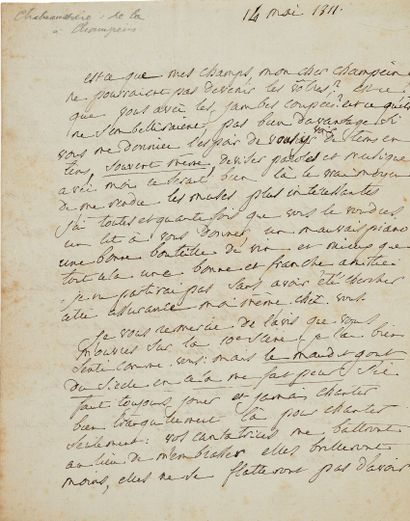 Chabeaussière de la
à Champein
14 mai 1811.
est ce que mes champs, mon cher champein
ne pourraient pas devenir les vôtres? est ce
que vous avez les jambes coupées? est ce qu'ils
ne s'embelliraient pas bien davantage si
vous me donniez l'espoir de vous y voir de tems en
tems, souvent meme deviser paroles et musique
avec moi ce serait bien là le vrai moyen
de me rendre les muses plus interessantes
J'ai toutes et quante fois que vous le voudrez
un lit à vous donner, un mauvais piano
une bonne bouteille de vin et mieux que
tout cela une bonne et franche amitié
je ne partirai pas sans avoir été chercher
cette assurance moi meme chez vous.
Je vous remercie de l'avis que vous
m'ouvrez sur la scene je l'ai bien
senti comme vous: mais le maudit gout
du siecle en cela me fait peur: il
faut toujours jouer et jamais chanter
bien tranquilement là pour chanter
seulement: vos cantatrices me battront
au lieu de m'embrasser elles brilleront
moins, elles ne se flatteront pas d'avoir